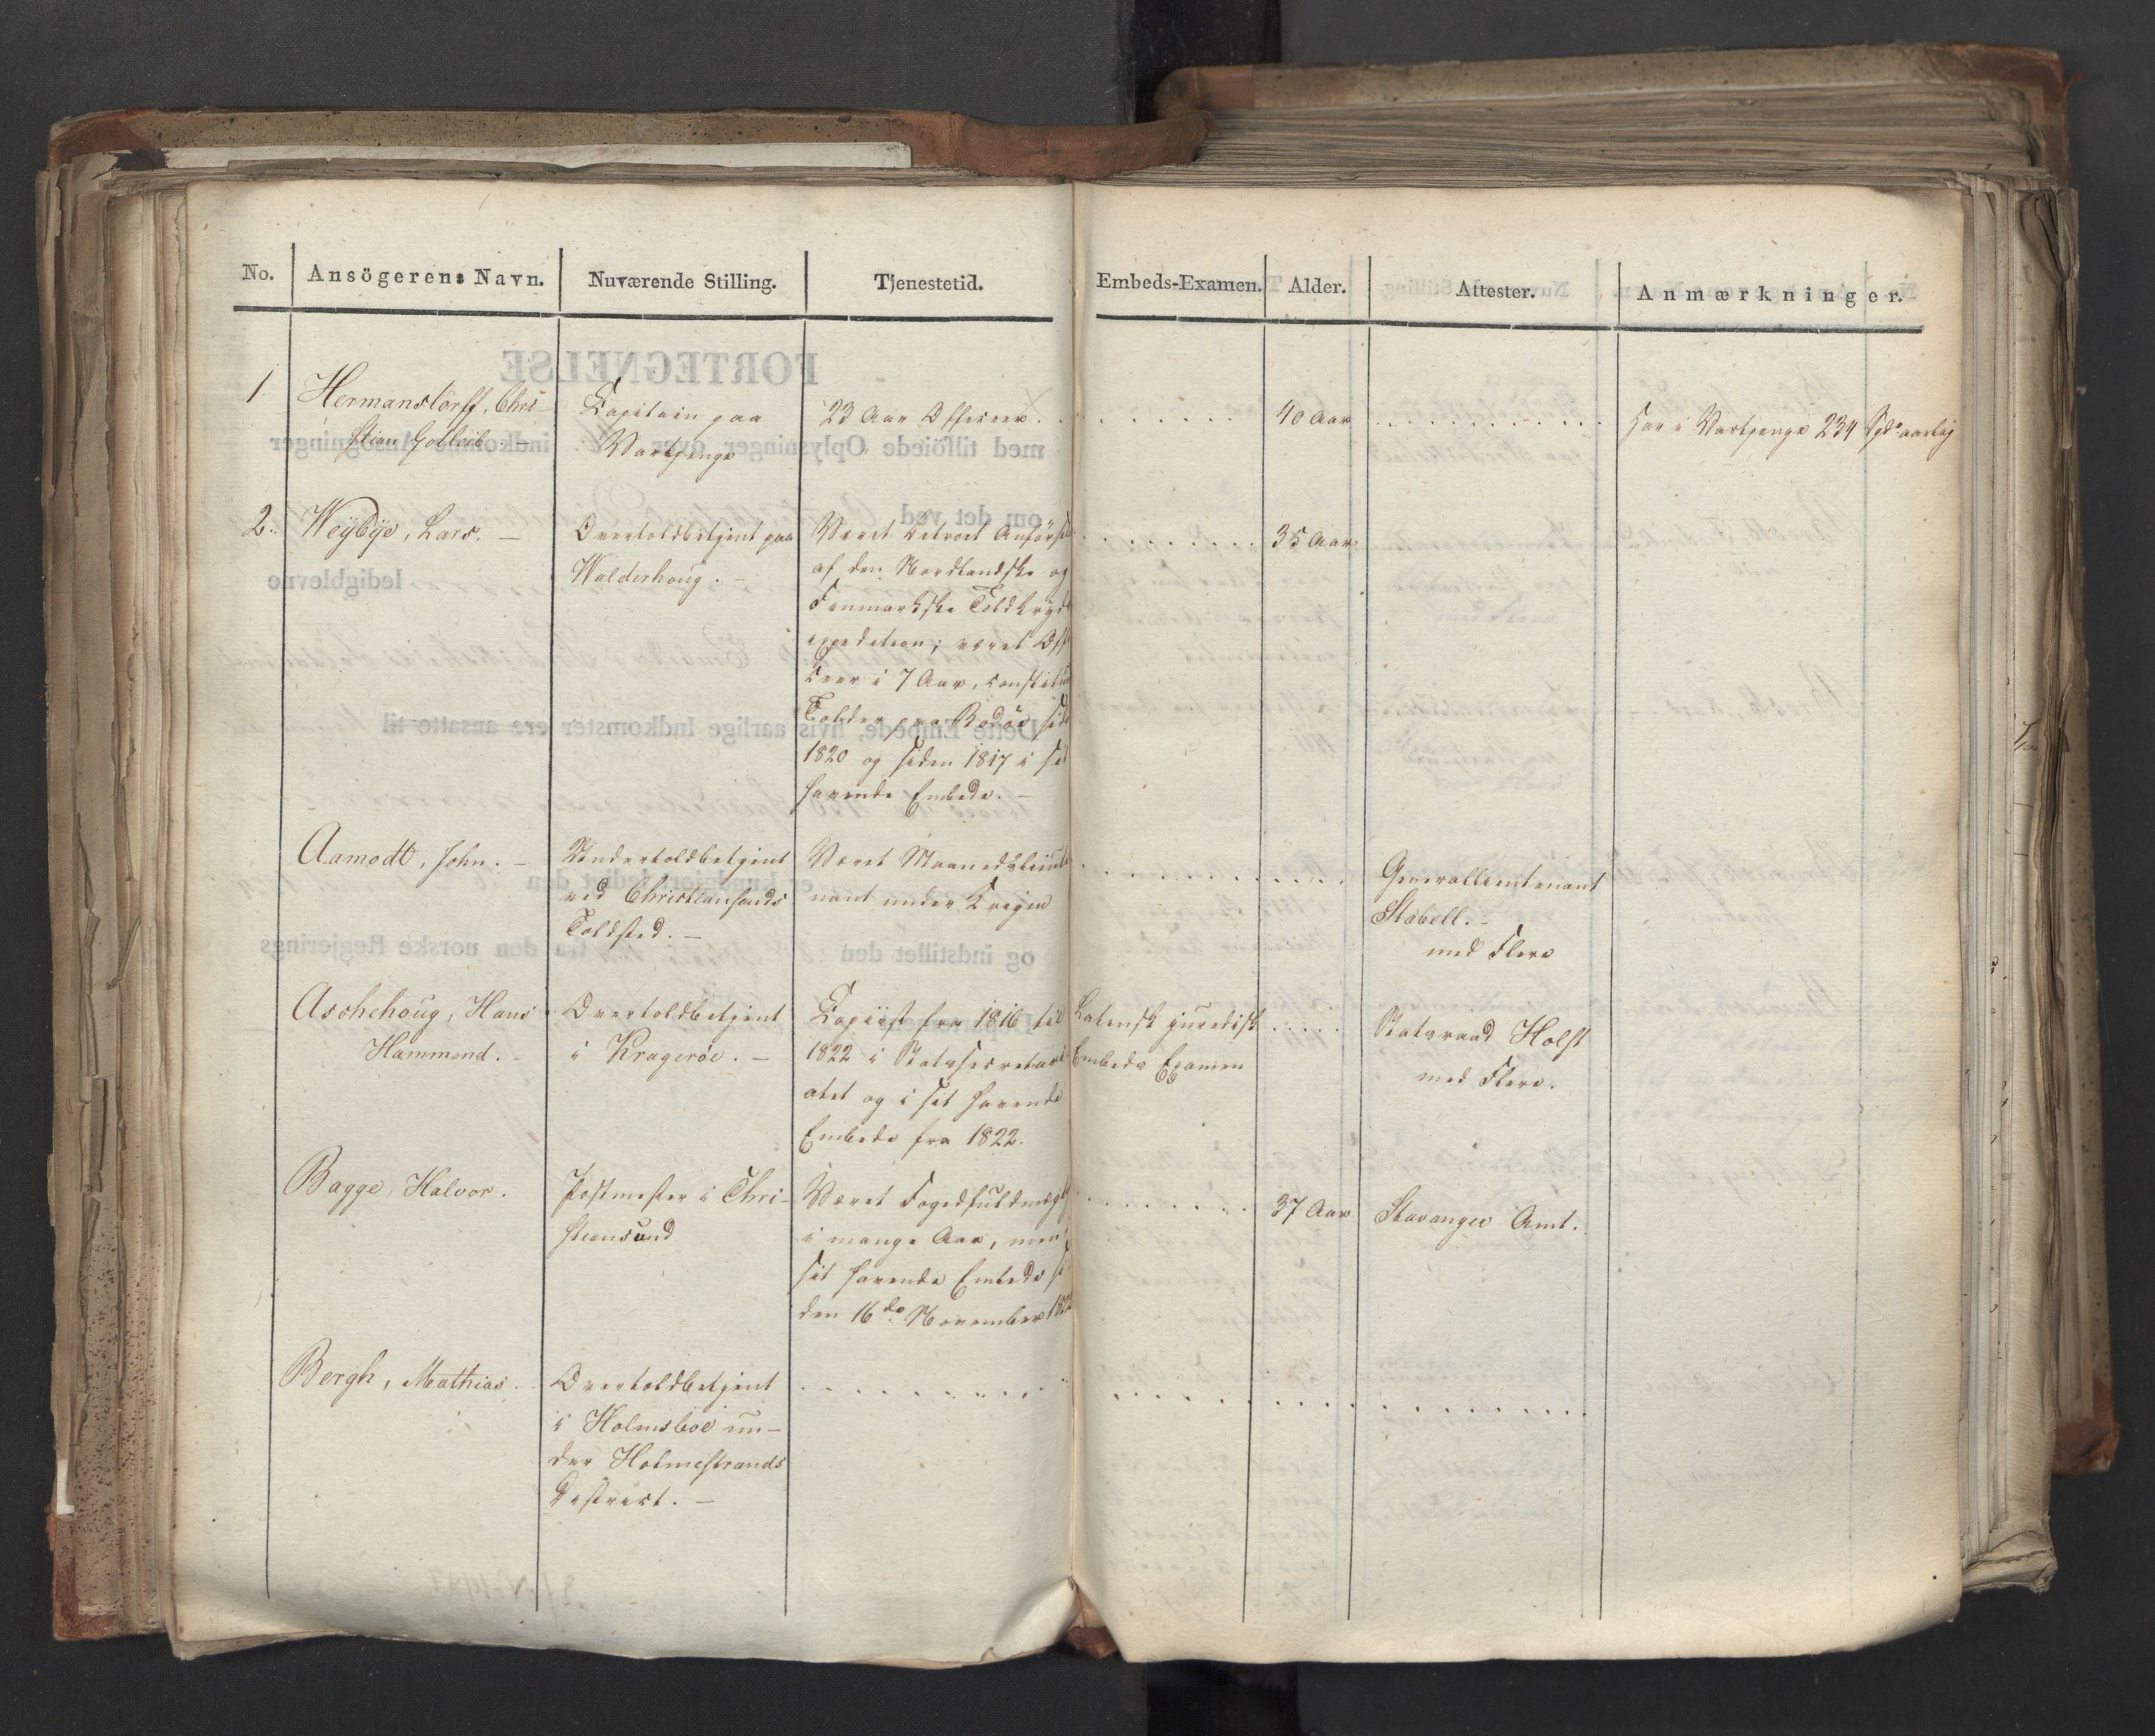 No. Ansögerens Navn. Nuværende Stilling. Tjenestetid. Embeds-Examen. Alder. Attester. Anmærkninger.
1 Hermanstörff, Chri-
stian Gottlieb. -
Capitain paa
Vartpenge
23 Aar Officeer.
40 Aar
Har i Vartpenge 234 Spd. aarlig
2. Weÿbÿe, Lars. -
Overtoldbetjent paa
Walderhoug. -
Været betroet Anförsel
af den Nordlandske og
Finmarkske Toldkryds
expedition; været Offi
ceer i 7 Aar, constitue
Tolder paa Bodöe side
1820 og siden 1817 i sit
havende Embede. -
35 Aar
Aamodt, John. -
Undertoldbetjent
ved Christiansands
Toldsted. -
Været Maanedslieute
nant under Krigen
Generallieutenant
Stabell. -
med Flere
Aschehoug, Hans
Hammond. -
Overtoldbetjent
i Kragerøe. -
Copiist fra 1816 til
1822 i Statssecretari
atet og i sit havende
Embede fra 1822.
Latinsk juridisk
Embeds Examen
Statsraad Holst
med Flere.
Bagge, Halvor.
Postmester i Chri-
stiansund
Været Fogedfuldmægt
i mange Aar, men
sit havende Embede si
den 16de November 182
37 Aar
Stavanger Amt.
Bergh, Mathias.
Overtoldbetjent
i Holmsboe un-
der Holmestrands
District. -